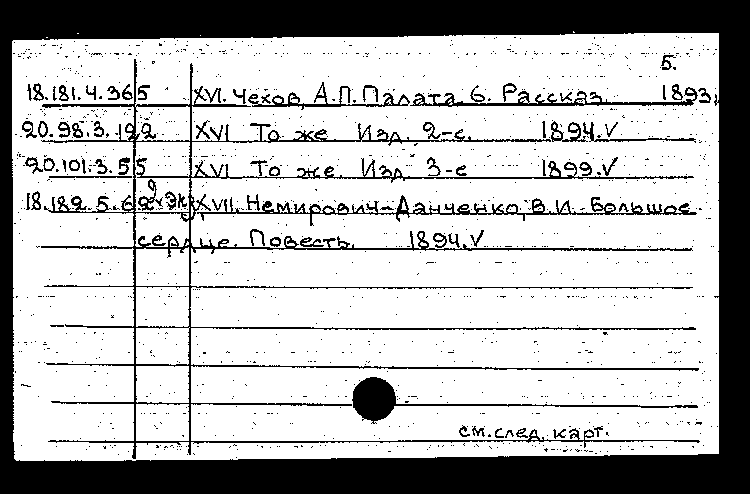 5.
18.181.4.365 XVI. Чехов, А.П. Палата 6. Рассказ. 1893.
20.98.3.122 XVI То же Изд. 2-е. 1894.V
20.101.3.55 XVI То же. Изд. 3-е 1899.V
18.182.5.62 XVII. Немирович-Данченко, В.И. Большое
сердце. Повесть. 1894.V
см. след. карт.